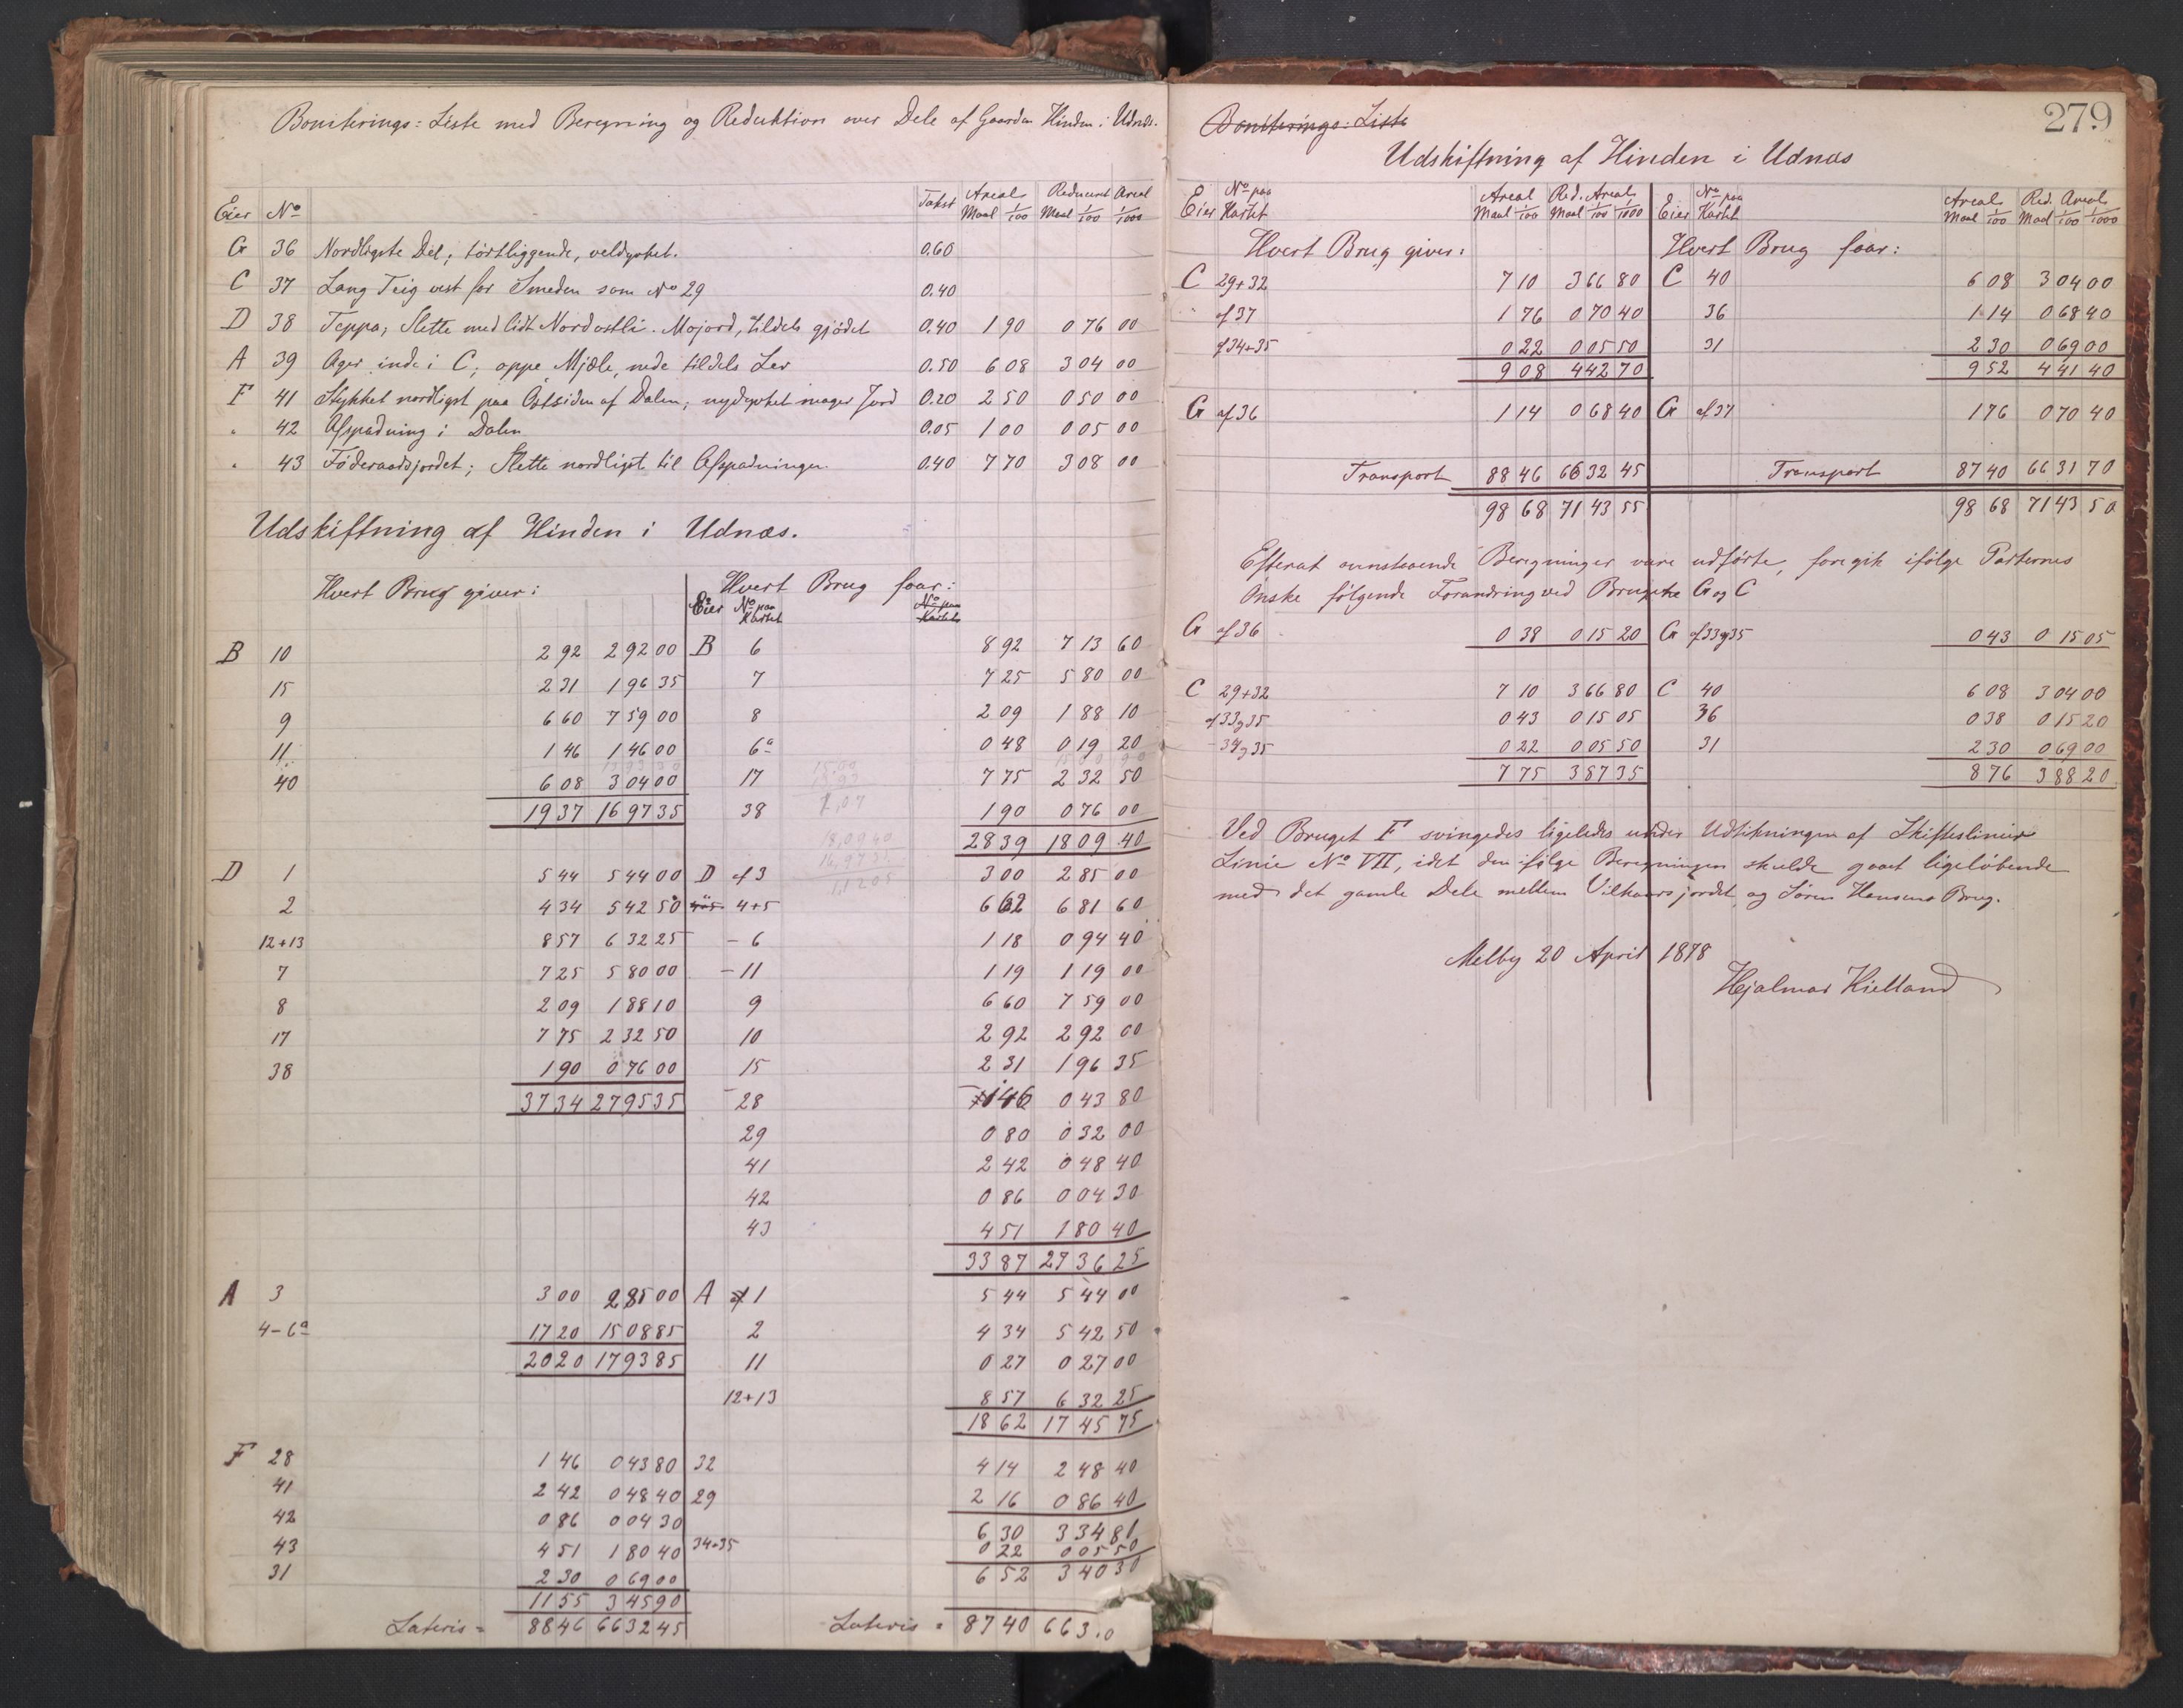 Boniterings-Liste med Beregning og Reduktion over Dele af Gaarden Hinden i Udnæs.
Eier No Takst Areal Maal 1/100 Reduceret Areal Maal 1/100 1/1000
G 36 Nordligste Del, tørtliggende, veldyrket. 0.60
C 37 Lang Teig vest for Smeden som No 29 0.40
D 38 Teppa, Slette med lidt Nordostli. Mojord, tildels gjødet 0.40 1 90 0 76 00
A 39 Ager inde i C, oppe Mjæle, nede tildels Ler 0.50 6 08 3 04 00
F 41 Stykket nordligst paa Østsiden af Dalen, nydyrket mager Jord 0.20 2 50 0 50 00
" 42 Afspadning i Dalen 0.05 1 00 0 05 00
" 43 Føderaadsjordet; Slette nordligst til Afspadningen. 0.40 7 70 3 08 00
Udskiftning af Hinden i Udnæs.
Hvert Brug giver: Hvert Brug faar:
Eier No paa Kartet No paa Kartet
B 10 2 92 2 92 00 B 6 8 92 7 13 60
15 2 31 1 96 35 7 7 25 5 80 00
9 6 60 7 59 00 8 2 09 1 88 10
11 1 46 1 46 00 6a 0 48 0 19 20
40 6 08 3 04 00 17 7 75 2 32 50
19 37 16 97 35 38 1 90 0 76 00
28 39 18 09 40
D 1 5 44 5 44 00 D af 3 3 00 2 85 00
2 4 34 5 42 50 4+5 6 62 6 81 60
12+13 8 57 6 32 25 - 6 1 18 0 94 40
7 7 25 5 80 00 - 11 1 19 1 19 00
8 2 09 1 88 10 9 6 60 7 59 00
17 7 75 2 32 50 10 2 92 2 92 00
38 1 90 0 76 00 15 2 31 1 96 35
37 34 27 95 35 28 1 46 0 43 80
29 0 80 0 32 00
41 2 42 0 48 40
42 0 86 0 04 30
43 4 51 1 80 40
33 87 27 36 25
A 3 3 00 2 85 00 A af 1 5 44 5 44 00
4-6a 17 20 15 08 85 2 4 34 5 42 50
20 20 17 93 85 11 0 27 0 27 00
12+13 8 57 6 32 25
18 62 17 45 75
F 28 1 46 0 43 80 32 4 14 2 48 40
41 2 42 0 48 40 29 2 16 0 86 40
42 0 86 0 04 30 6 30 3 34 81
43 4 51 1 80 40 34+35 0 22 0 05 50
31 2 30 0 69 00 6 52 3 40 30
11 55 3 45 90
Lateris = 88 46 66 32 45 Lateris = 87 40 66 3.0
279
Boniterings-Liste
Udskiftning af Hinden i Udnæs
Eier No paa Kartet Areal Maal 1/100 Red. Areal Maal 1/100 1/1000 Eier No paa Kartet Areal Maal 1/100 Red. Areal Maal 1/100 1/1000
Hvert Brug giver: Hvert Brug faar:
C 29+32 7 10 3 66 80 C 40 6 08 3 04 00
" af 37 1 76 0 70 40 36 1 14 0 68 40
af 34+35 0 22 0 05 50 31 2 30 0 69 00
9 08 4 42 70 9 52 4 41 40
G af 36 1 14 0 68 40 G af 37 1 76 0 70 40
Transport 88 46 66 32 45 Transport 87 40 66 31 70
98 68 71 43 55 98 68 71 43 50
Efterat ovenstaaende Beregninger vare udførte, foregik ifølge Parternes
Ønske følgende Forandring ved Brugene G og C
G af 36 0 38 0 15 20 G af 33 og 35 0 43 0 15 05
C 29+32 7 10 3 66 80 C 40 6 08 3 04 00
af 33 og 35 0 43 0 15 05 36 0 38 0 15 20
- 34 og 35 0 22 0 05 50 31 2 30 0 69 00
7 75 3 87 35 8 76 3 88 20
Ved Bruget F svingedes ligeledes under Udstikningen af Skifteslinier
Linie No VII, idet den ifølge Beregningen skulde gaaet ligeløbende
med det gamle Dele mellem Vilkaarsjordet og Søren Hansens Brug.
Melby 20 April 1878
Hjalmar Kielland